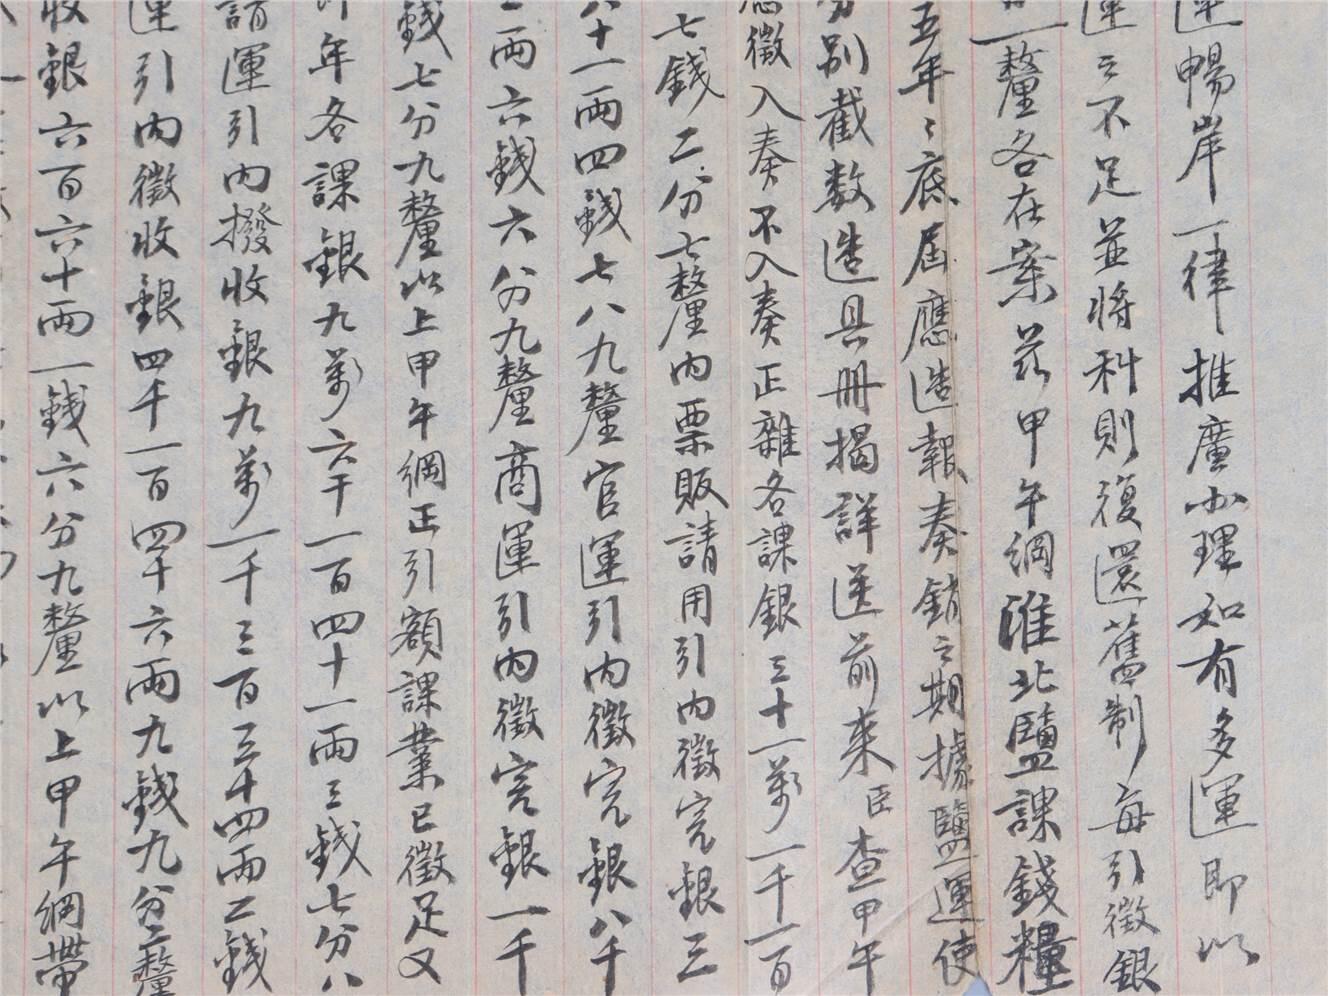 運暢岸一律推廣办理如有多運即以
運之不足並將科則復還舊制每引徵銀
一釐各在案茲甲午綱淮北鹽課錢糧
五年年底屆應造報奏銷之期據鹽運使
分別截数造具冊揭詳送前來臣查甲午
應徵入奏不入奏正雜各課銀三十一萬一千一百
七錢二分七釐內票販請用引內徵完銀三
八十一兩四錢七八九釐官運引內徵完銀八千
二兩六錢六分九釐商運引內徵完銀一千
錢七分九釐以上甲午綱正引額課業已徵足又
年各課銀九萬六千一百四十一兩三錢七分八
請運引內撥收銀九萬一千三百三十四兩二錢
運引內徵收銀四千一百四十六兩九錢九分二釐
收銀六百六十兩一錢六分九釐以上甲午綱帶